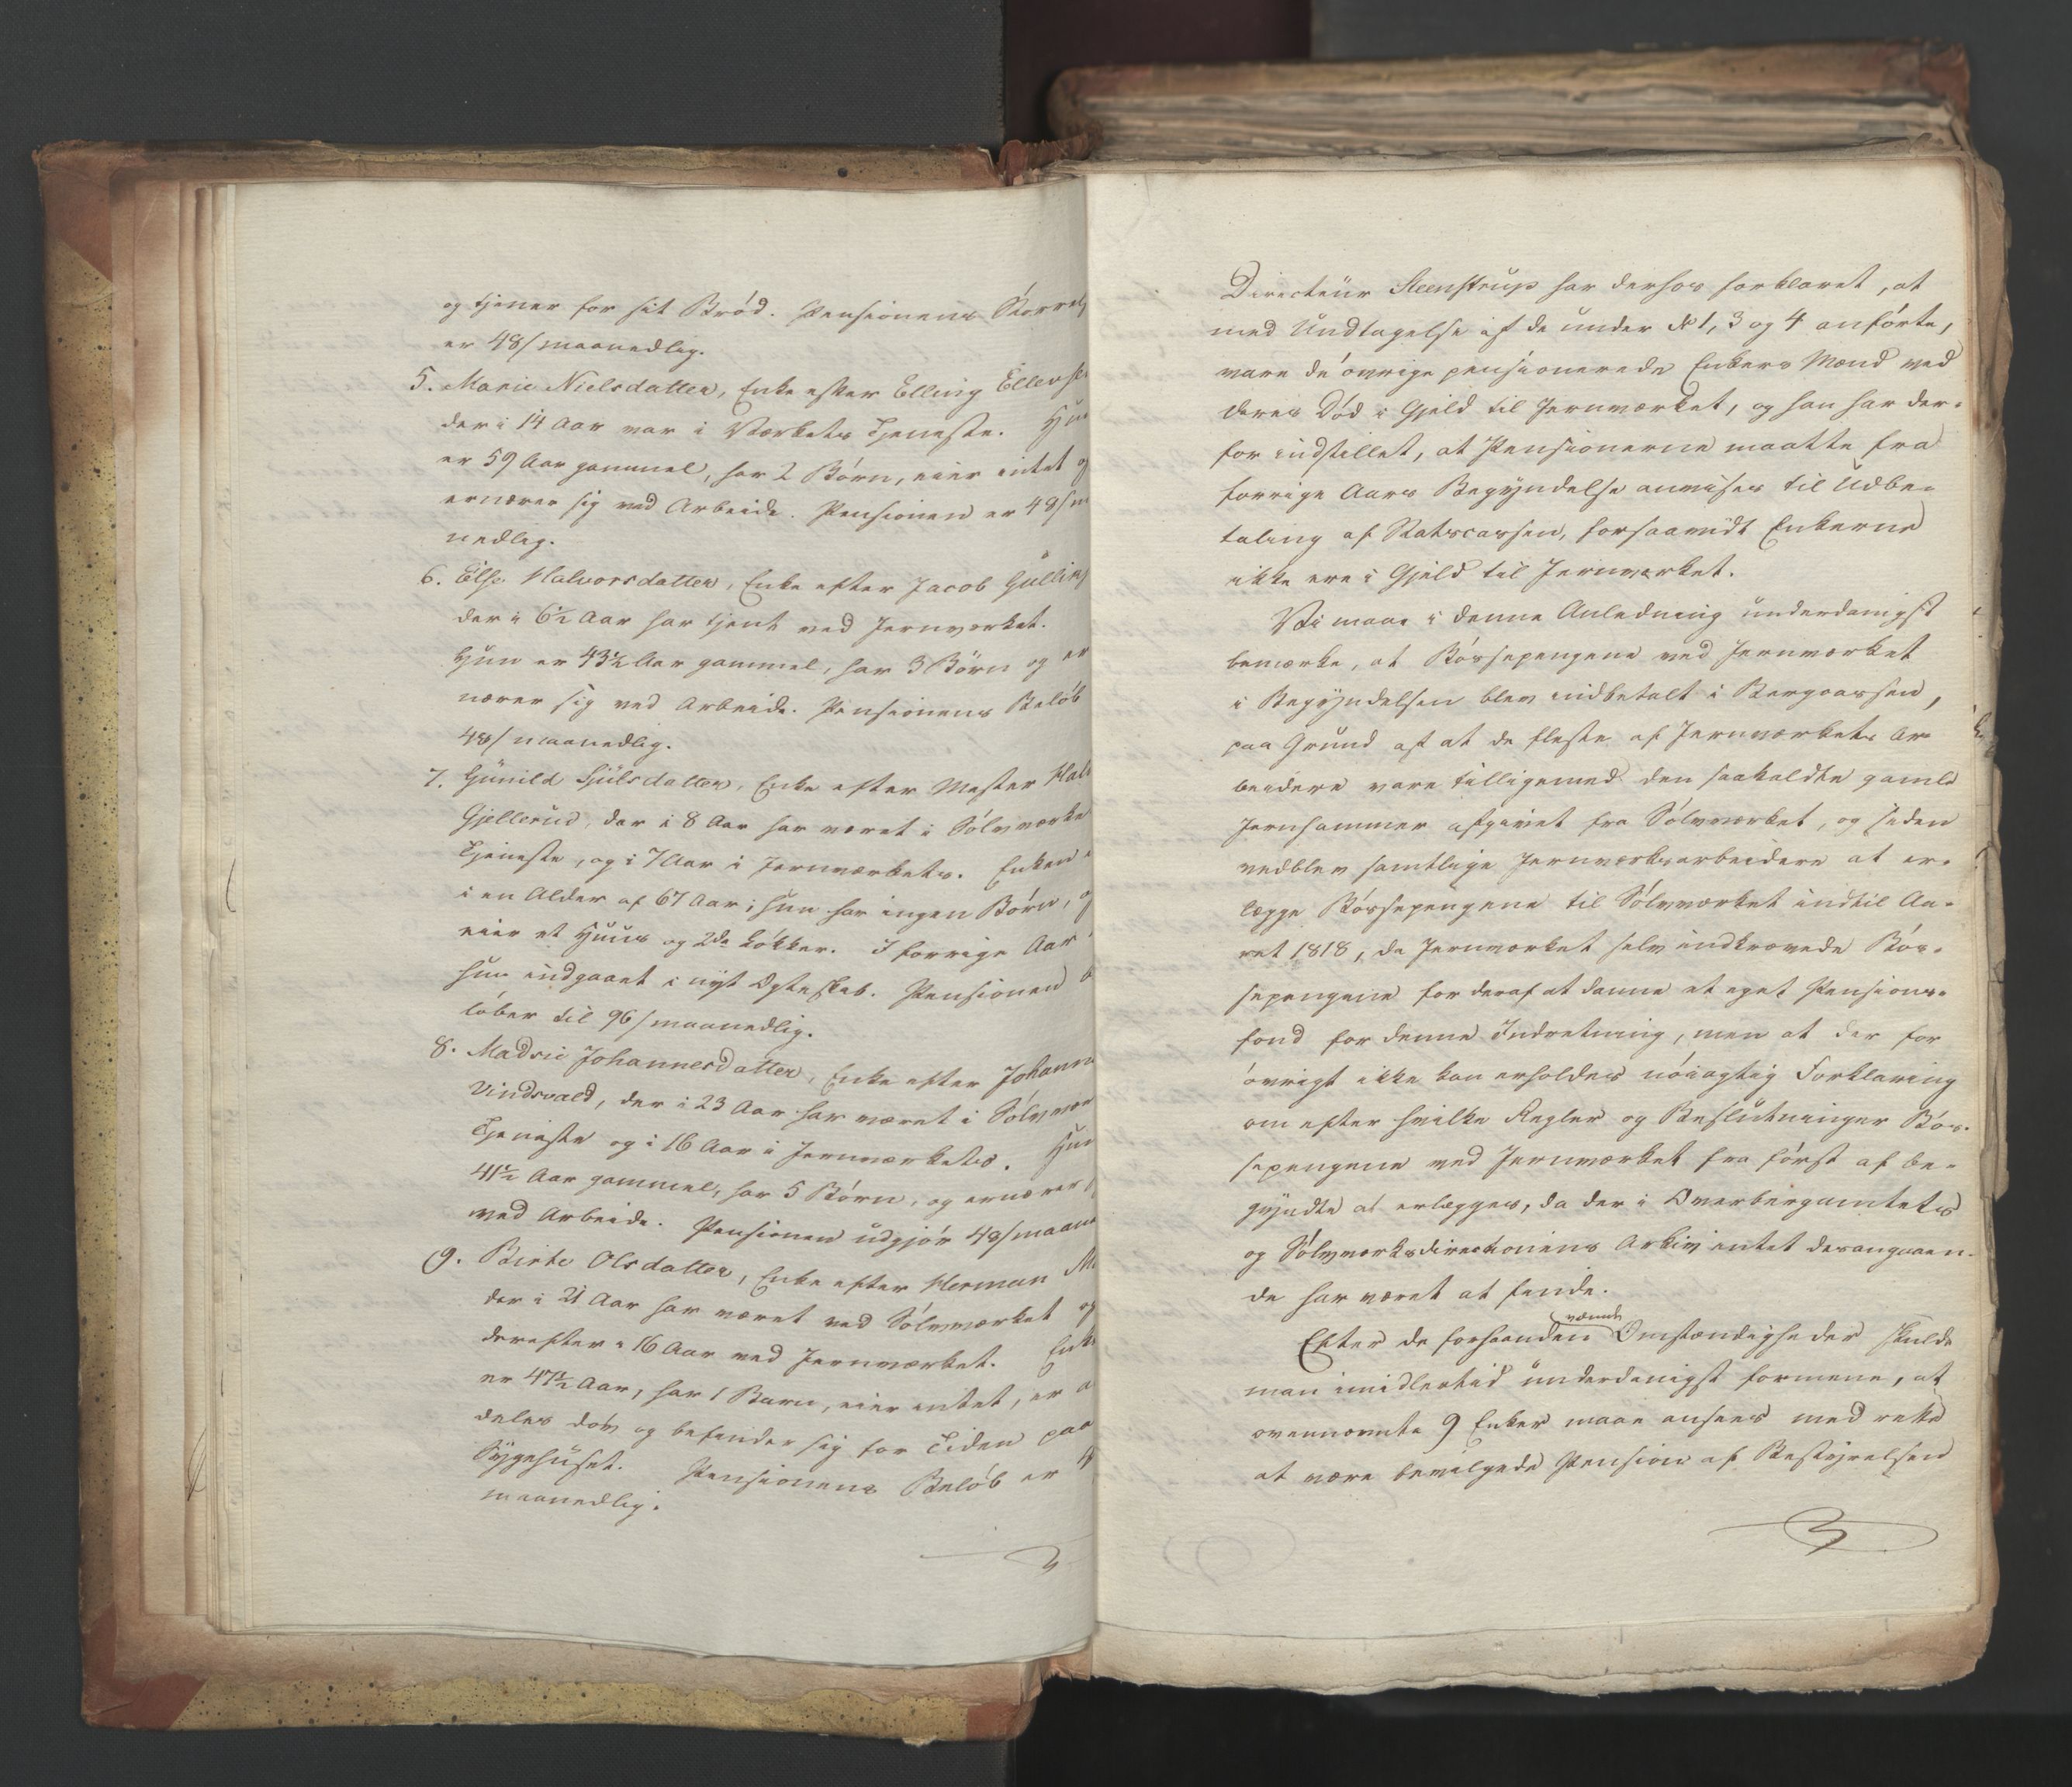 og tjener for sit Bröd. Pensionens Störrels
er 48/ maanedlig.
5. Marie Nielsdatter, Enke efter Elling Ellevse
der i 14 Aar var i Værkets Tjeneste. Hun
er 59 Aar gammel, har 2 Börn, eier intet og
ernærer sig ved Arbeide. Pensionen er 48/ m
nedlig.
6. Else Halvorsdatter, Enke efter Jacob Gulli
der i 6½ Aar har tjent ved Jernværket.
Hun er 43½ Aar gammel, har 3 Börn og er
nærer sig ved Arbeide. Pensionens Belöb
48/ maanedlig.
7. Gunild Sjulsdatter, Enke efter Mester Hal
Gjellerud, der i 8 Aar har været i Sölvværke
Tjeneste, og i 7 Aar i Jernværkets. Enken e
i en Alder af 67 Aar; hun har ingen Börn, og
eier et Huus og 2de Lökker. I forrige Aar
hun indgaaet i nyt Ægteskab. Pensionen b
löber til 96/ maanedlig.
8. Madsie Johannesdatter, Enke efter Johann
Vindsvald, der i 23 Aar har været i Sölvvær
Tjeneste og i 16 Aar i Jernværkets. Hun
41½ Aar gammel, har 5 Börn, og ernærer
ved Arbeide. Pensionen udgjör 48/ maane
9. Birte Olsdatter, Enke efter Herman M
der i 21 Aar har været ved Sölvværket og
derefter i 16 Aar ved Jernværket. Enke
er 47½ Aar, har 1 Barn, eier intet, er a
deles döv og befinder sig for Tiden paa
Sygehuset. Pensionens Belöb er
maanedlig.
Directeur Steenstrup har derhos forklaret, at
med Undtagelse af de under No 1, 3 og 4 anförte,
vare de övrige pensionerede Enkers Mænd ved
deres Död i Gjeld til Jernværket, og han har der-
for indstillet, at Pensionerne maatte fra
forrige Aars Begyndelse anvises til Udbe-
taling af Statscassen, forsaavidt Enkerne
ikke ere i Gjeld til Jernværket.
Vi maae i denne Anledning underdanigst
bemærke, at Bössepengene ved Jernværket
i Begyndelsen blev indbetalt i Bergcassen,
paa Grund af at de fleste af Jernværkets Ar-
beidere vare tilligemed den saakaldte gamle
Jernhammer afgivet fra Sölvværket, og siden
vedblev samtlige Jernværksarbeidere at er-
lægge Bössepengene til Sölvværket indtil Aa-
ret 1818, da Jernværket selv indkrævede Bös-
sepengene for deraf at danne et eget Pensions-
fond for denne Indretning, men at der for
övrigt ikke kan erholdes nöiagtig Forklaring
om efter hvilke Regler og Beslutninger Bös-
sepengene ved Jernværket fra först af be-
gyndte at erlægges, da der i Overbergamtets
og Sölvværksdirectionens Arkiv intet desangaaen-
de har været at finde.
værende
Efter de forhaanden Omstændigheder skulde
man imidlertid underdanigst formene, at
ovennævnte 9 Enker maae ansees med rette
at være bevilgede Pension af Bestyrelsen